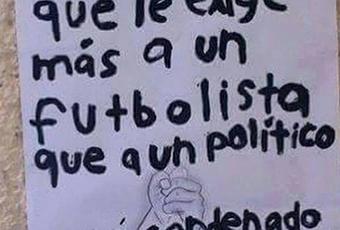 que le exige
más a un
futbolista
que a un político
condenado